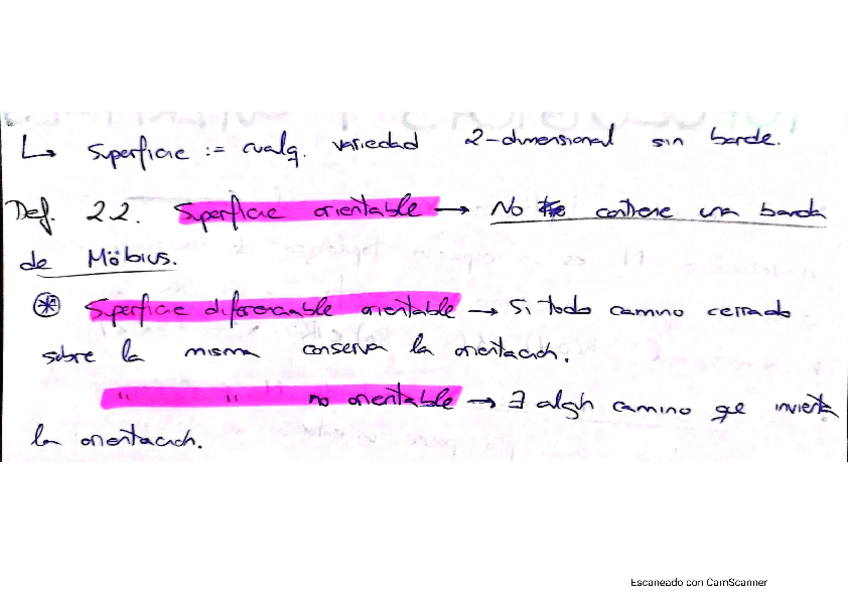 ↳ Superficie := cualq. variedad 2-dimensional sin borde.
Def. 2.2. Superficie orientable → No contiene una banda
de Möbius.
⊛ Superficie diferenciable orientable → Si todo camino cerrado
sobre la misma conserva la orientación.
" " no orientable → ∃ algún camino qe invierta
la orientación.
Escaneado con CamScanner